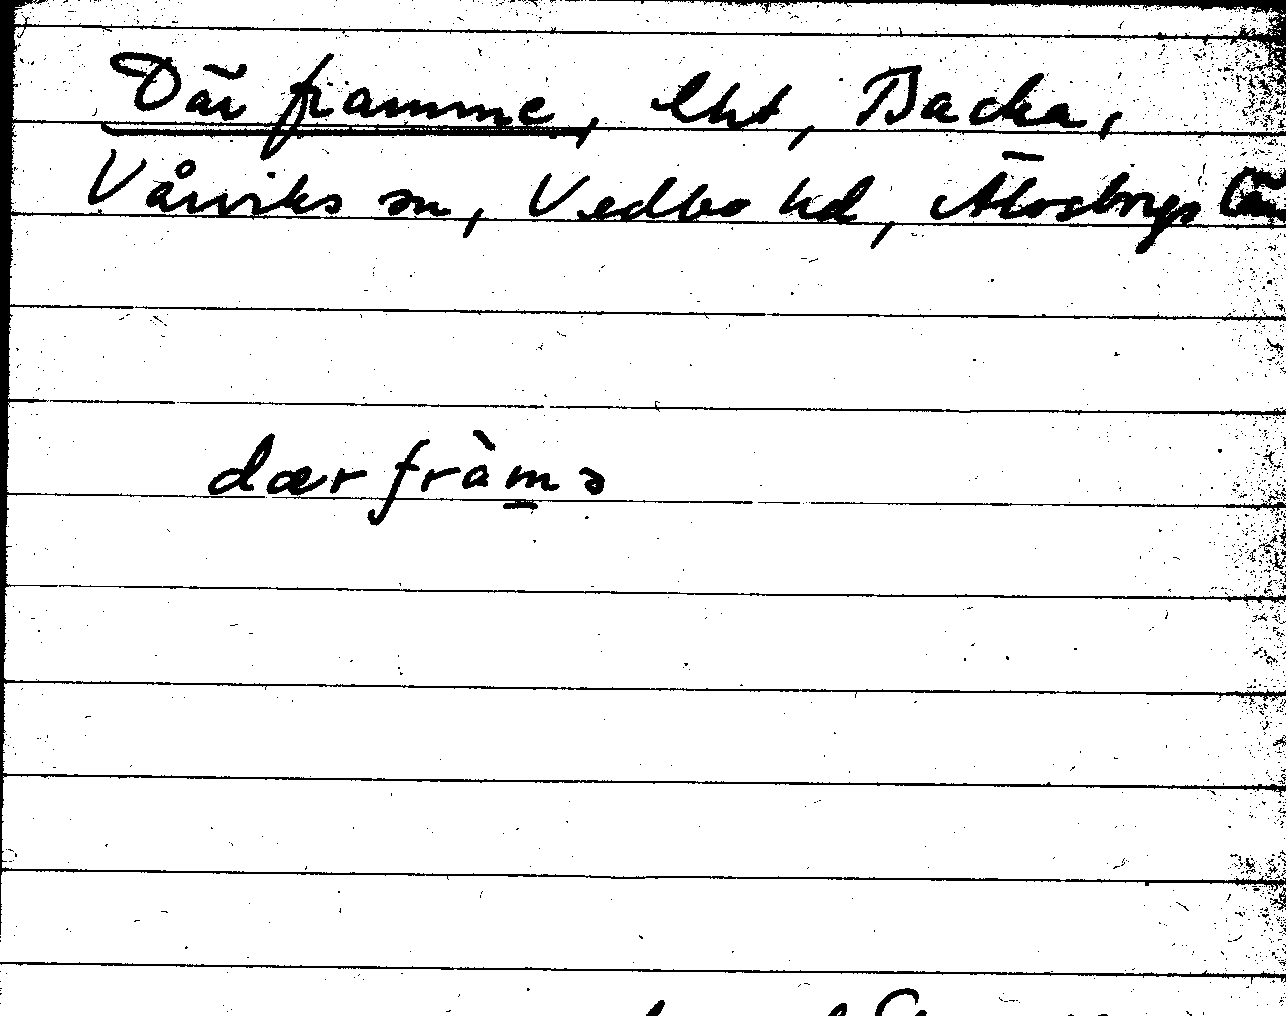 Där framme, lht, Backa,
Vårviks sn, Vedbo hd, Älvsborgs län
dær fràm̲ə